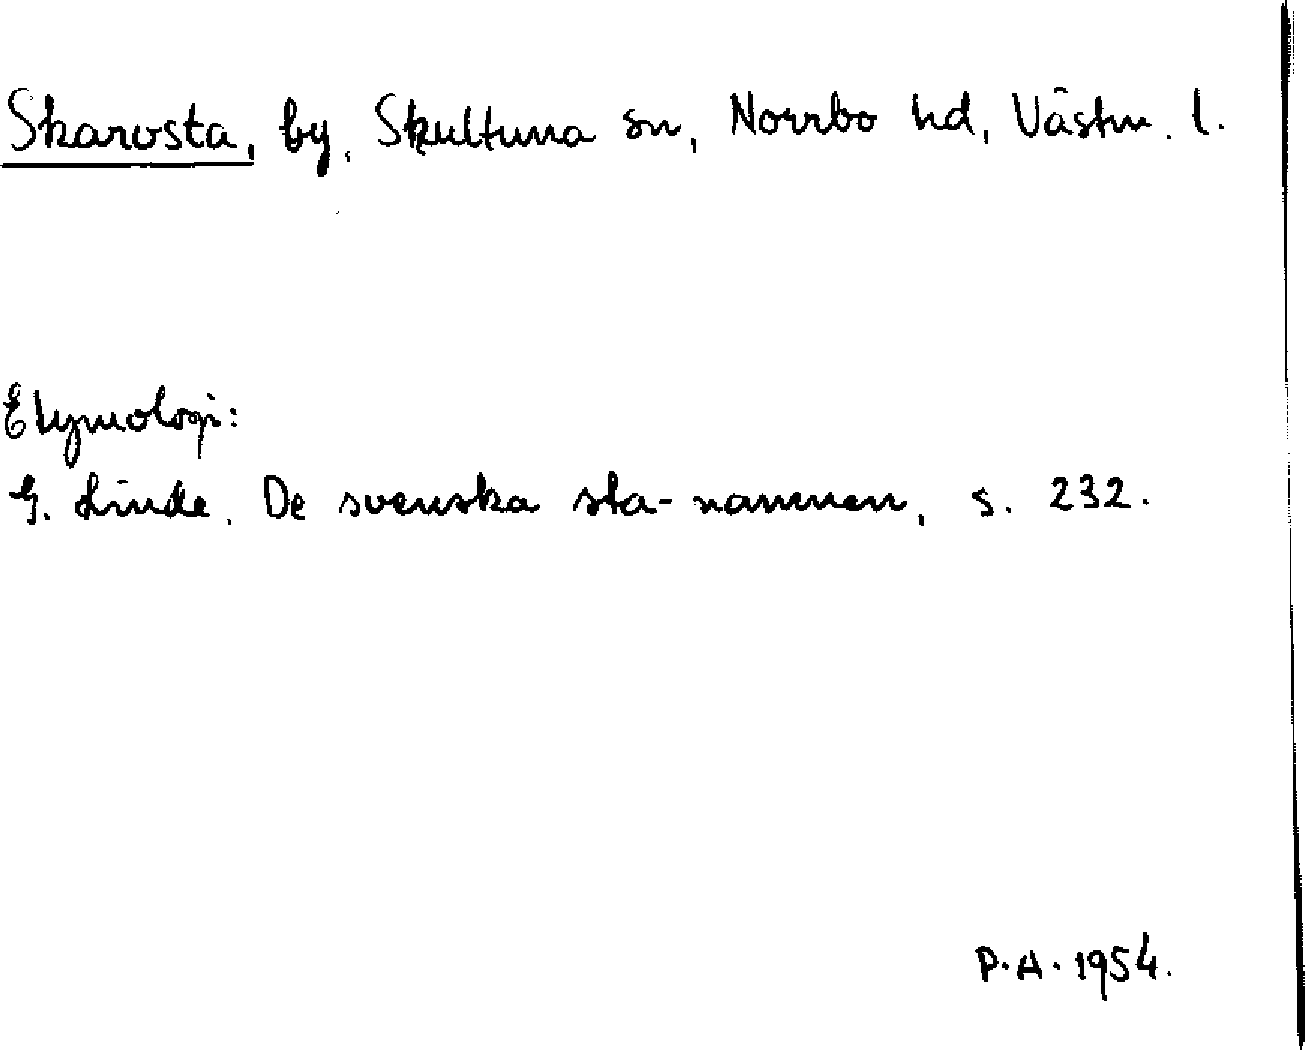 Skarvsta, by, Skultuna sn, Norrbo hd, Västm. l.
Etymologi:
G. Linde, De svenska sta-namnen, s. 232.
P.A. 1954.